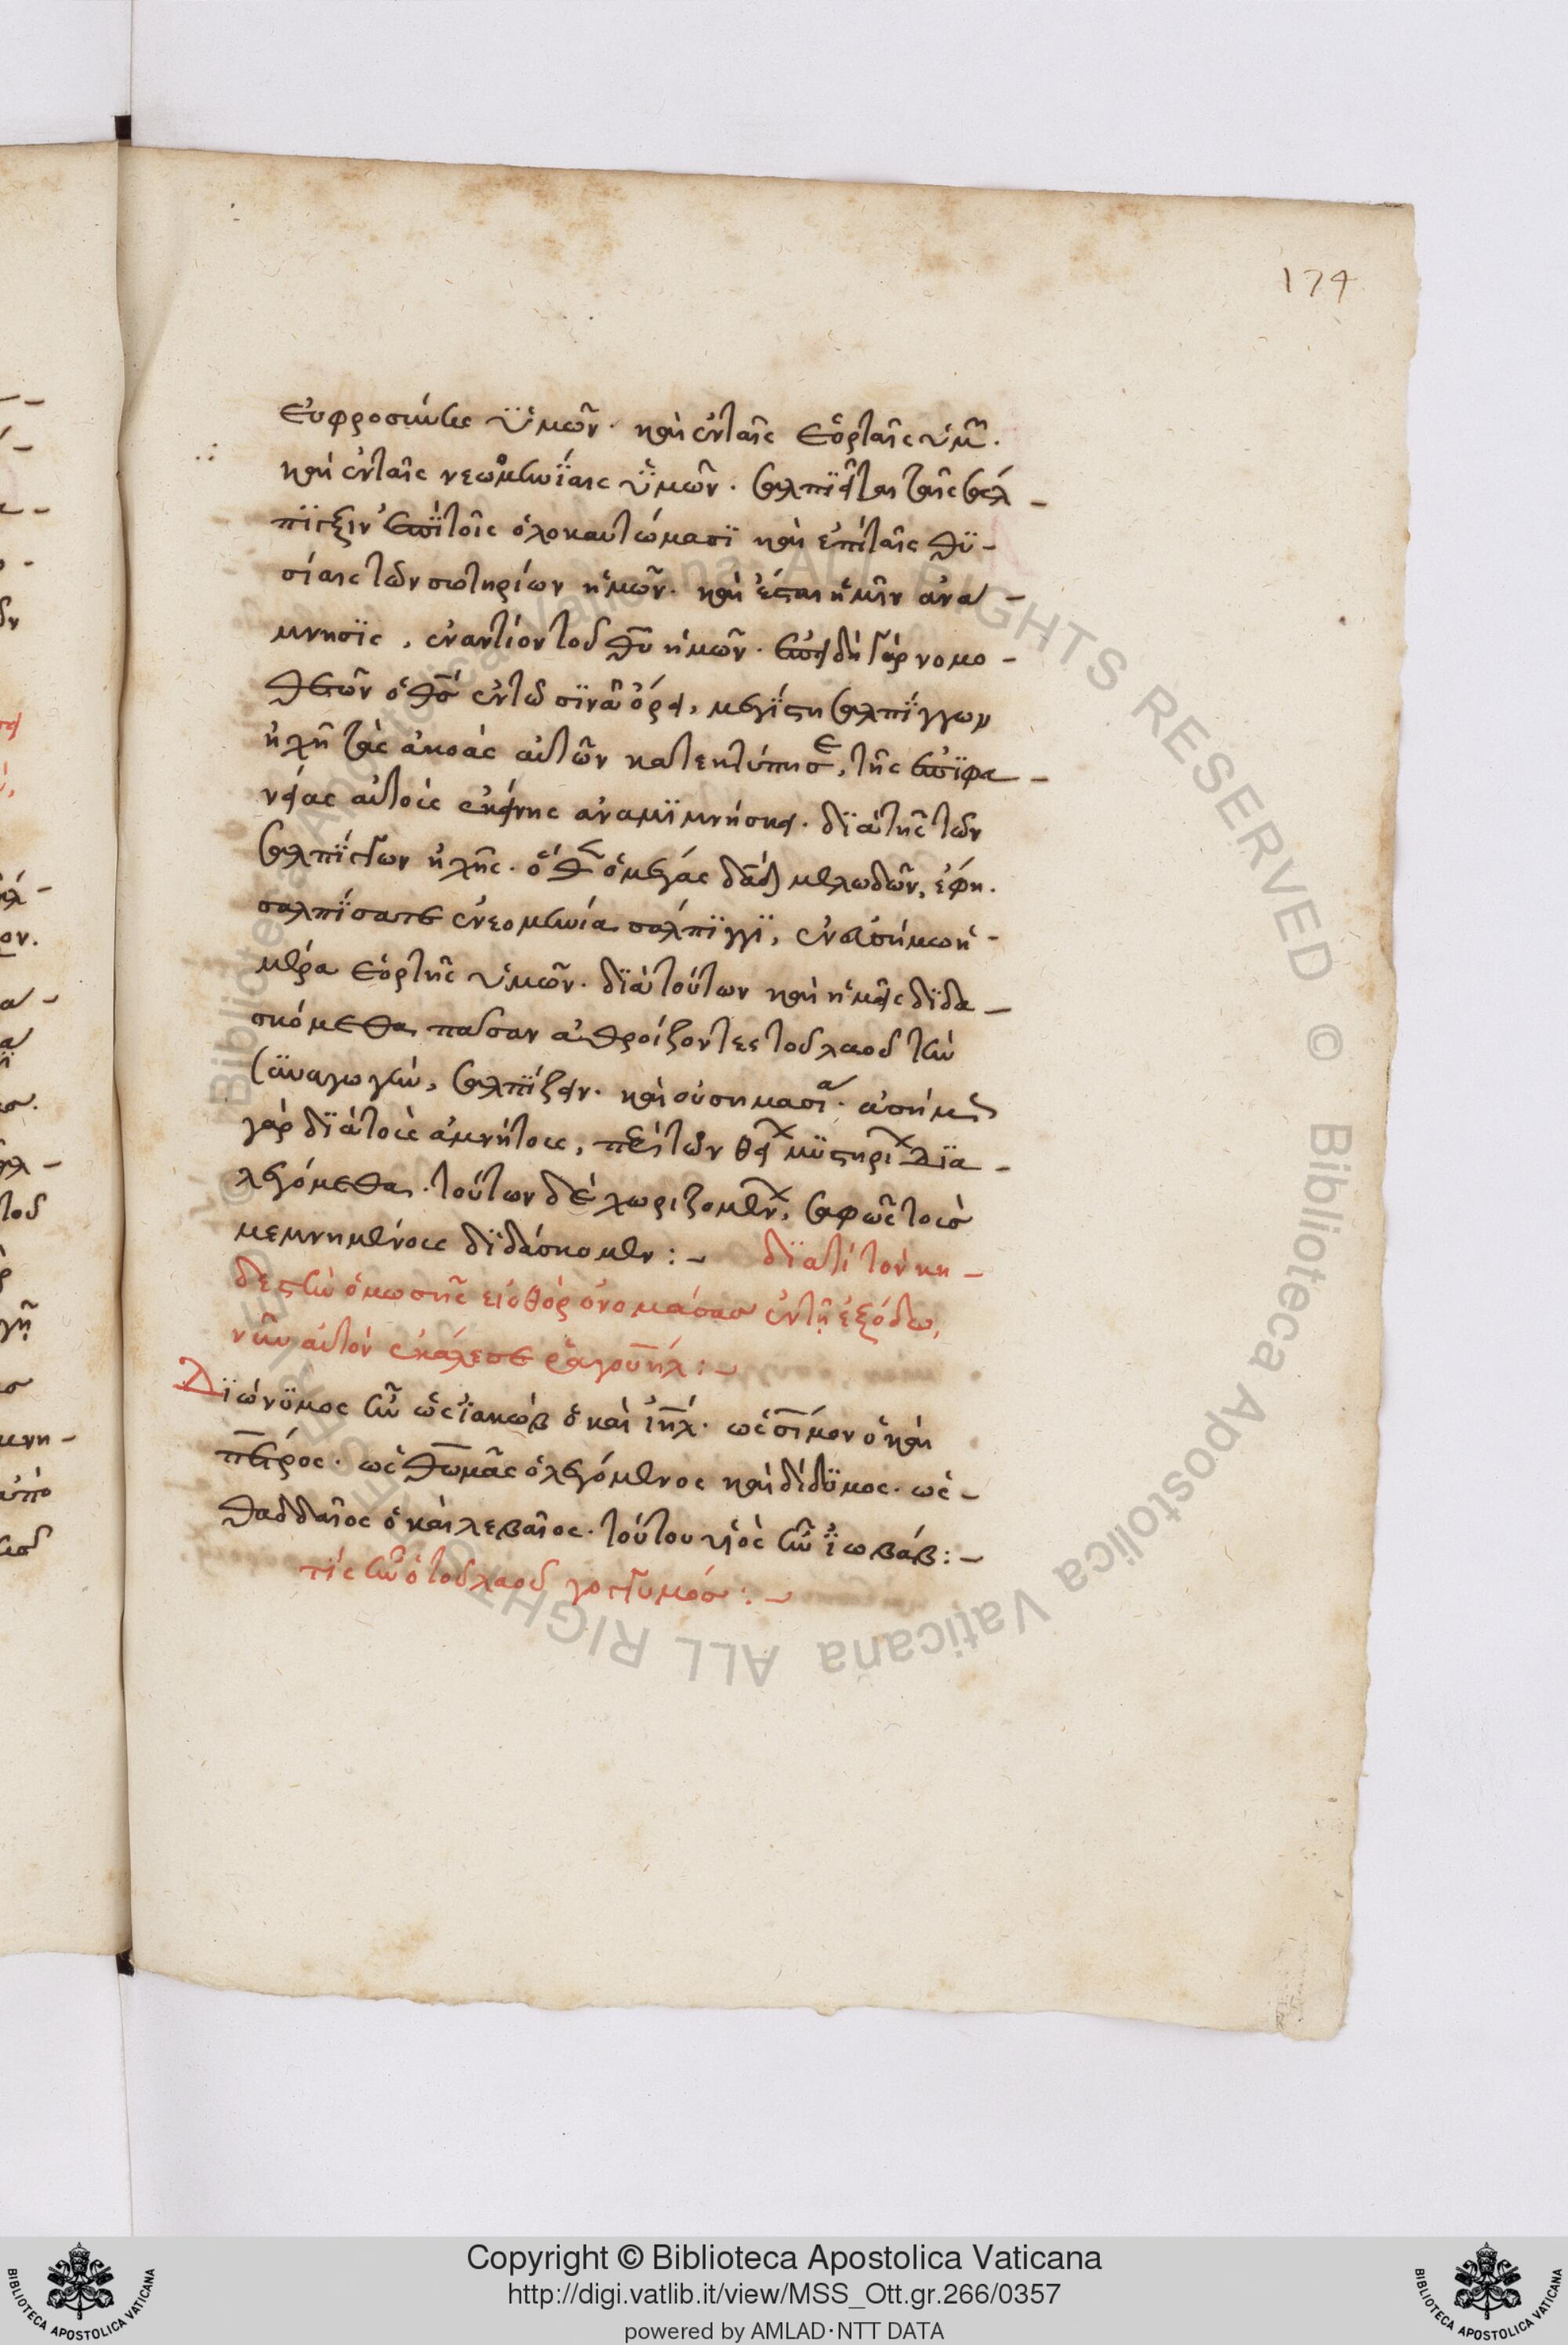 174
εὐφροσύνης ὑμῶν· καὶ ἐν ταῖς ἑορταῖς ὑμῶν.
καὶ ἐν ταῖς νεομηνΐαις ὑμῶν. σαλπϊεῖται ταῖς σάλ-
πϊγξιν ἐπὶ τοῖς ὁλοκαυτώμασϊ καὶ ἐπὶ ταῖς θϋ-
σίαις τῶν σωτηρίων ἡμῶν. καὶ ἔσται ἡμῖν ἀνα-
μνησϊς, ἐναντίον τοῦ θυ ἡμῶν. ἐπειδὴ γὰρ νομο-
θετῶν ὁ θς ἐν τῶ σϊνᾶ ὄρει, μεγίστη σαλπΐγγων
ἠχῆ τὰς ἀκοὰς αὐτῶν κατεκτύπησε, τῆς ἐπϊφα-
νείας αὐτοὺς ἐκείνης ἀναμϊμνήσκει. δϊὰ τῆς τῶν
σαλπΐγγων ἠχῆς. ὁ μέγας δαδ μελωδῶν, ἔφη.
σαλπΐσατε ἐν νεομηνία σάλπϊγγϊ, ἐν εὐσήμω ἡ-
μέρα ἑορτῆς ὑμῶν. δϊὰ τούτων καὶ ἡμεῖς δϊδα-
σκόμεθα πᾶσαν ἀθροίζοντες τοῦ λαοῦ τὴν
συναγωγὴν, σαλπΐζειν. καὶ οὐ σημασία. ἀσήμως
γὰρ δϊὰ τοὺς ἀμυήτους, περὶ τῶν θείων μϋστηρίων δϊα-
λεγόμεθα. τούτων δὲ χωριζομένων, σαφῶς τοὺσ
μεμνημένους δϊδάσκομεν :- δϊατί τὸν κη-
δεστὴν ὁ μωσῆς εἰοθὸρ ὀνομάσασ ἐν τῇ ἐξόδω,
νῦν αὐτὸν ἐκάλεσε ῥαγουὴλ :-
Δϊώνϋμος ἦν ὡς ἰακὼβ ὁ καὶ ἰηλ· ὡς σίμον ὁ καὶ
πετρος· ὡς θωμᾶς ὁ λεγόμενος καὶ δίδϋμος· ὡς-
θαδδαῖος ὁ καὶ λεβαῖος. τούτου υἱὸς ἦν ἰωβάβ :-
τίς ἦν ὁ τοῦ λαοῦ γογγυσμόσ :-
Copyright © Biblioteca Apostolica Vaticana
http://digi.vatlib.it/view/MSS_Ott.gr.266/0357
powered by AMLAD·NTT DATA